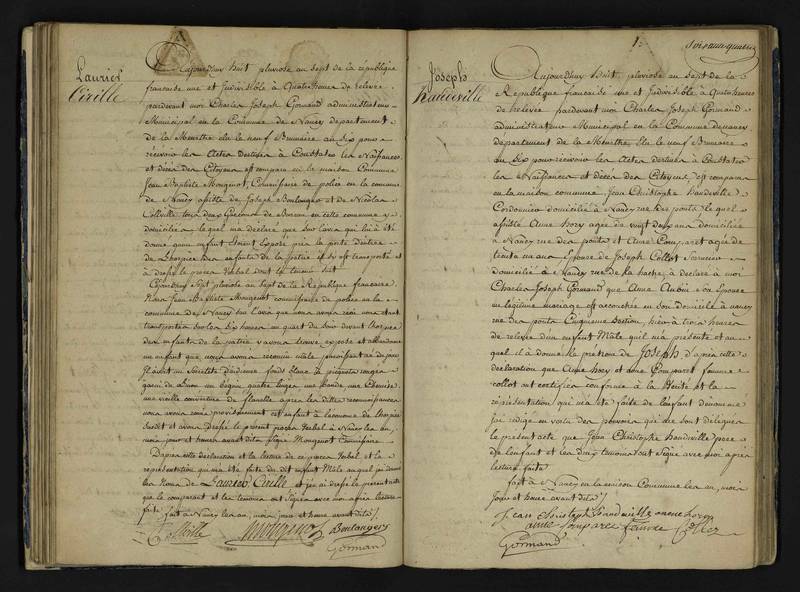 Laurier
Cirille
Aujourdhuy huit pluviose an sept de la république
francaise une et Indivisible à quatre heures de relevé
pardevant moi Charles Joseph Gormand administrateur
Municipal en la Commune de Nancy departement
de la Meurthe élu le neuf Brumaire an six pour
recevoir les actes destinés à Constater les Naissances
et décès des Citoyens est comparu en la maison Commune
Jean Baptiste Mougenot, Commissaire de police en la commune
de Nancy assisté de Joseph Boulanger et de Nicolas
Collville tous deux Garçons de Bureau en cette commune y
domiciliés lequel m'a declaré que sur l'avis qui lui a été
donné qu'un enfant étoit Exposé près la porte d'entrée
de L'hospice des enfants de la patrie il s'y est transporté et
à dressé le procès Verbal dont la teneur suit
Cejourdhuy Sept pluviose an Sept de la Republique francaise
Nous Jean Baptiste Mougenot commissaire de police en la
commune de Nancy sur l'avis que nous avons reçu nous etant
transportés sur les Six heures un quart du soir devant l'hospice
des enfants de la patrie y avons trouvé exposé et abandonné
un enfant que nous avons reconnu mâle
fond blanc à
garni de un béguin quatre langes une bande, une Chemise
une vieille couverture de flanelle après les dittes reconnoissances
nous avons confié provisoirement cet enfant à l'econome de l'hospice
Susdit et avons dressé le présent procès Verbal à Nancy les an,
mois jour et heures avant dits Signé Mougenot Commissaire
D'après cette déclaration et la lecture de ce procès Verbal et la
représentation qui m'a été faite du dit enfant Mâle auquel j'ai donné
les Noms de Laurier Cirille et j'ai dressé le présent acte
que le comparant et les temoins ont Signés avec moi après lecture
faite
fait à Nancy les an, mois, jour et heure avant dits
Collville Mougenot Boulanger
Gormand
Soixante quatre
Joseph
Haudeville
Aujourdhuy huit pluviose an sept de la
Republique francaise une et Indivisible à quatre heures
de Relevée pardevant moi Charles Joseph Gormand
administrateur Municipal en la Commune de nancy
departement de la Meurthe élu le neuf Brumaire
an Six pour recevoir les actes destinés à Constater
les Naissances et décès des Citoyens est comparu
en la maison commune Jean Christophe haudeville
Cordonnier domicilié à Nancy rue des ponts lequel
assisté Anne hory agée de vingt deux ans domiciliée
à Nancy rue des ponts et Anne Comparet agée de
trente un ans Epouse de Joseph Collot
domicilié à Nancy rue de la hache, à déclaré à moi
Charles Joseph Gormand que Anne Aubin son Epouse
en légitime mariage est accouchée en son domicile à nancy
rue des ponts Cinquieme Section, hier à trois heures
de relevée d'un enfant Mâle qu'il m'a présenté et au
quel il à donné le prenom de Joseph, d'après cette
déclaration que Anne hory et Anne Comparet femme
collot ont certifiée conforme à la Vérité et la
représentation qui m'a été faite de l'enfant dénommé
j'ai redigé en vertu des pouvoirs qui me sont délégués
le present acte que Jean Christophe haudeville pere
de l'enfant et les deux temoins ont Signé avec moi après
lecture faite
fait à Nancy en la maison Commune les an, mois
Jour et heure avant dits
Jean Christoph Haudeville anne hory
anne Comparee femme Collot
Gormand